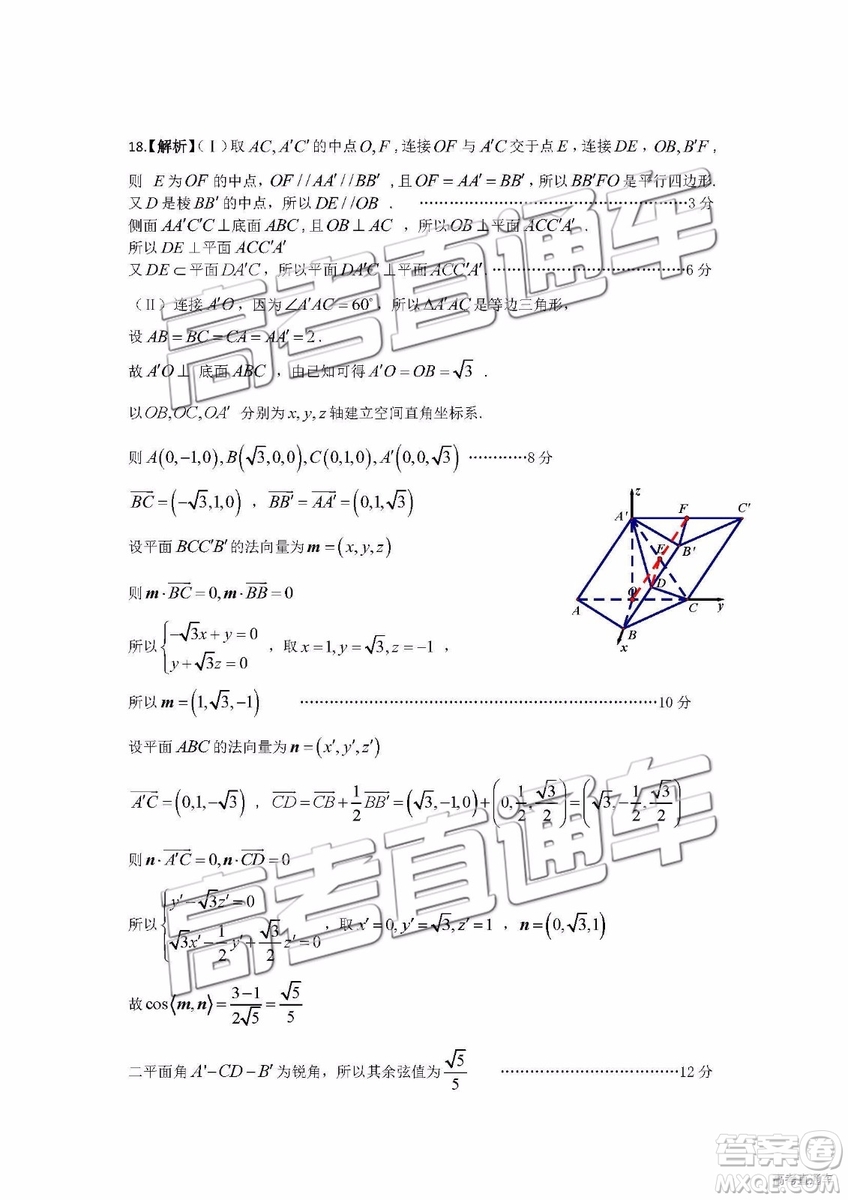 18.【解析】(Ⅰ)取 AC, A′C′ 的中点 O, F , 连接 OF 与 A′C 交于点 E , 连接 DE , OB, B′F ,
则 E 为 OF 的中点, OF // AA′ // BB′ , 且 OF = AA′ = BB′ , 所以 BB′FO 是平行四边形.
又 D 是棱 BB′ 的中点, 所以 DE // OB . ………………………………………………3 分
侧面 AA′C′C ⊥底面 ABC , 且 OB ⊥ AC , 所以 OB ⊥平面 ACC′A′ .
所以 DE ⊥平面 ACC′A′
又 DE ⊂ 平面 DA′C , 所以平面 DA′C ⊥平面 ACC′A′ .…………………………………6 分
(Ⅱ) 连接 A′O , 因为 ∠A′AC = 60° , 所以 ΔA′AC 是等边三角形,
设 AB = BC = CA = AA′ = 2 .
故 A′O ⊥ 底面 ABC , 由已知可得 A′O = OB = √3 .
以 OB, OC, OA′ 分别为 x, y, z 轴建立空间直角坐标系.
则 A(0,−1,0), B(√3,0,0), C(0,1,0), A′(0,0,√3) …………8 分
BC = (−√3,1,0) , BB′ = AA′ = (0,1,√3)
设平面 BCC′B′ 的法向量为 m = (x, y, z)
则 m·BC = 0, m·BB = 0
所以 {−√3x + y = 0
y + √3z = 0 , 取 x = 1, y = √3, z = −1 ,
所以 m = (1,√3,−1) ………………………………………………………………10 分
设平面 ABC 的法向量为 n = (x′, y′, z′)
A′C = (0,1,−√3) , CD = CB + 1/2 BB′ = (√3,−1,0) + (0, 1/2, √3/2) = (√3, −1/2, √3/2)
则 n·A′C = 0, n·CD = 0
所以 {y′ − √3z′ = 0
√3x′ − 1/2 y′ + √3/2 z′ = 0 , 取 x′ = 0, y′ = √3, z′ = 1 , n = (0,√3,1)
故 cos⟨m, n⟩ = (3−1)/(2√5) = √5/5
二平面角 A′−CD−B′ 为锐角, 所以其余弦值为 √5/5 ………………………………12 分
z
A′
F
C′
B′
E
D
O
A
C
y
B
x
高考直通车
高考直通车
答案圈
MXQE.COM
高考直通车